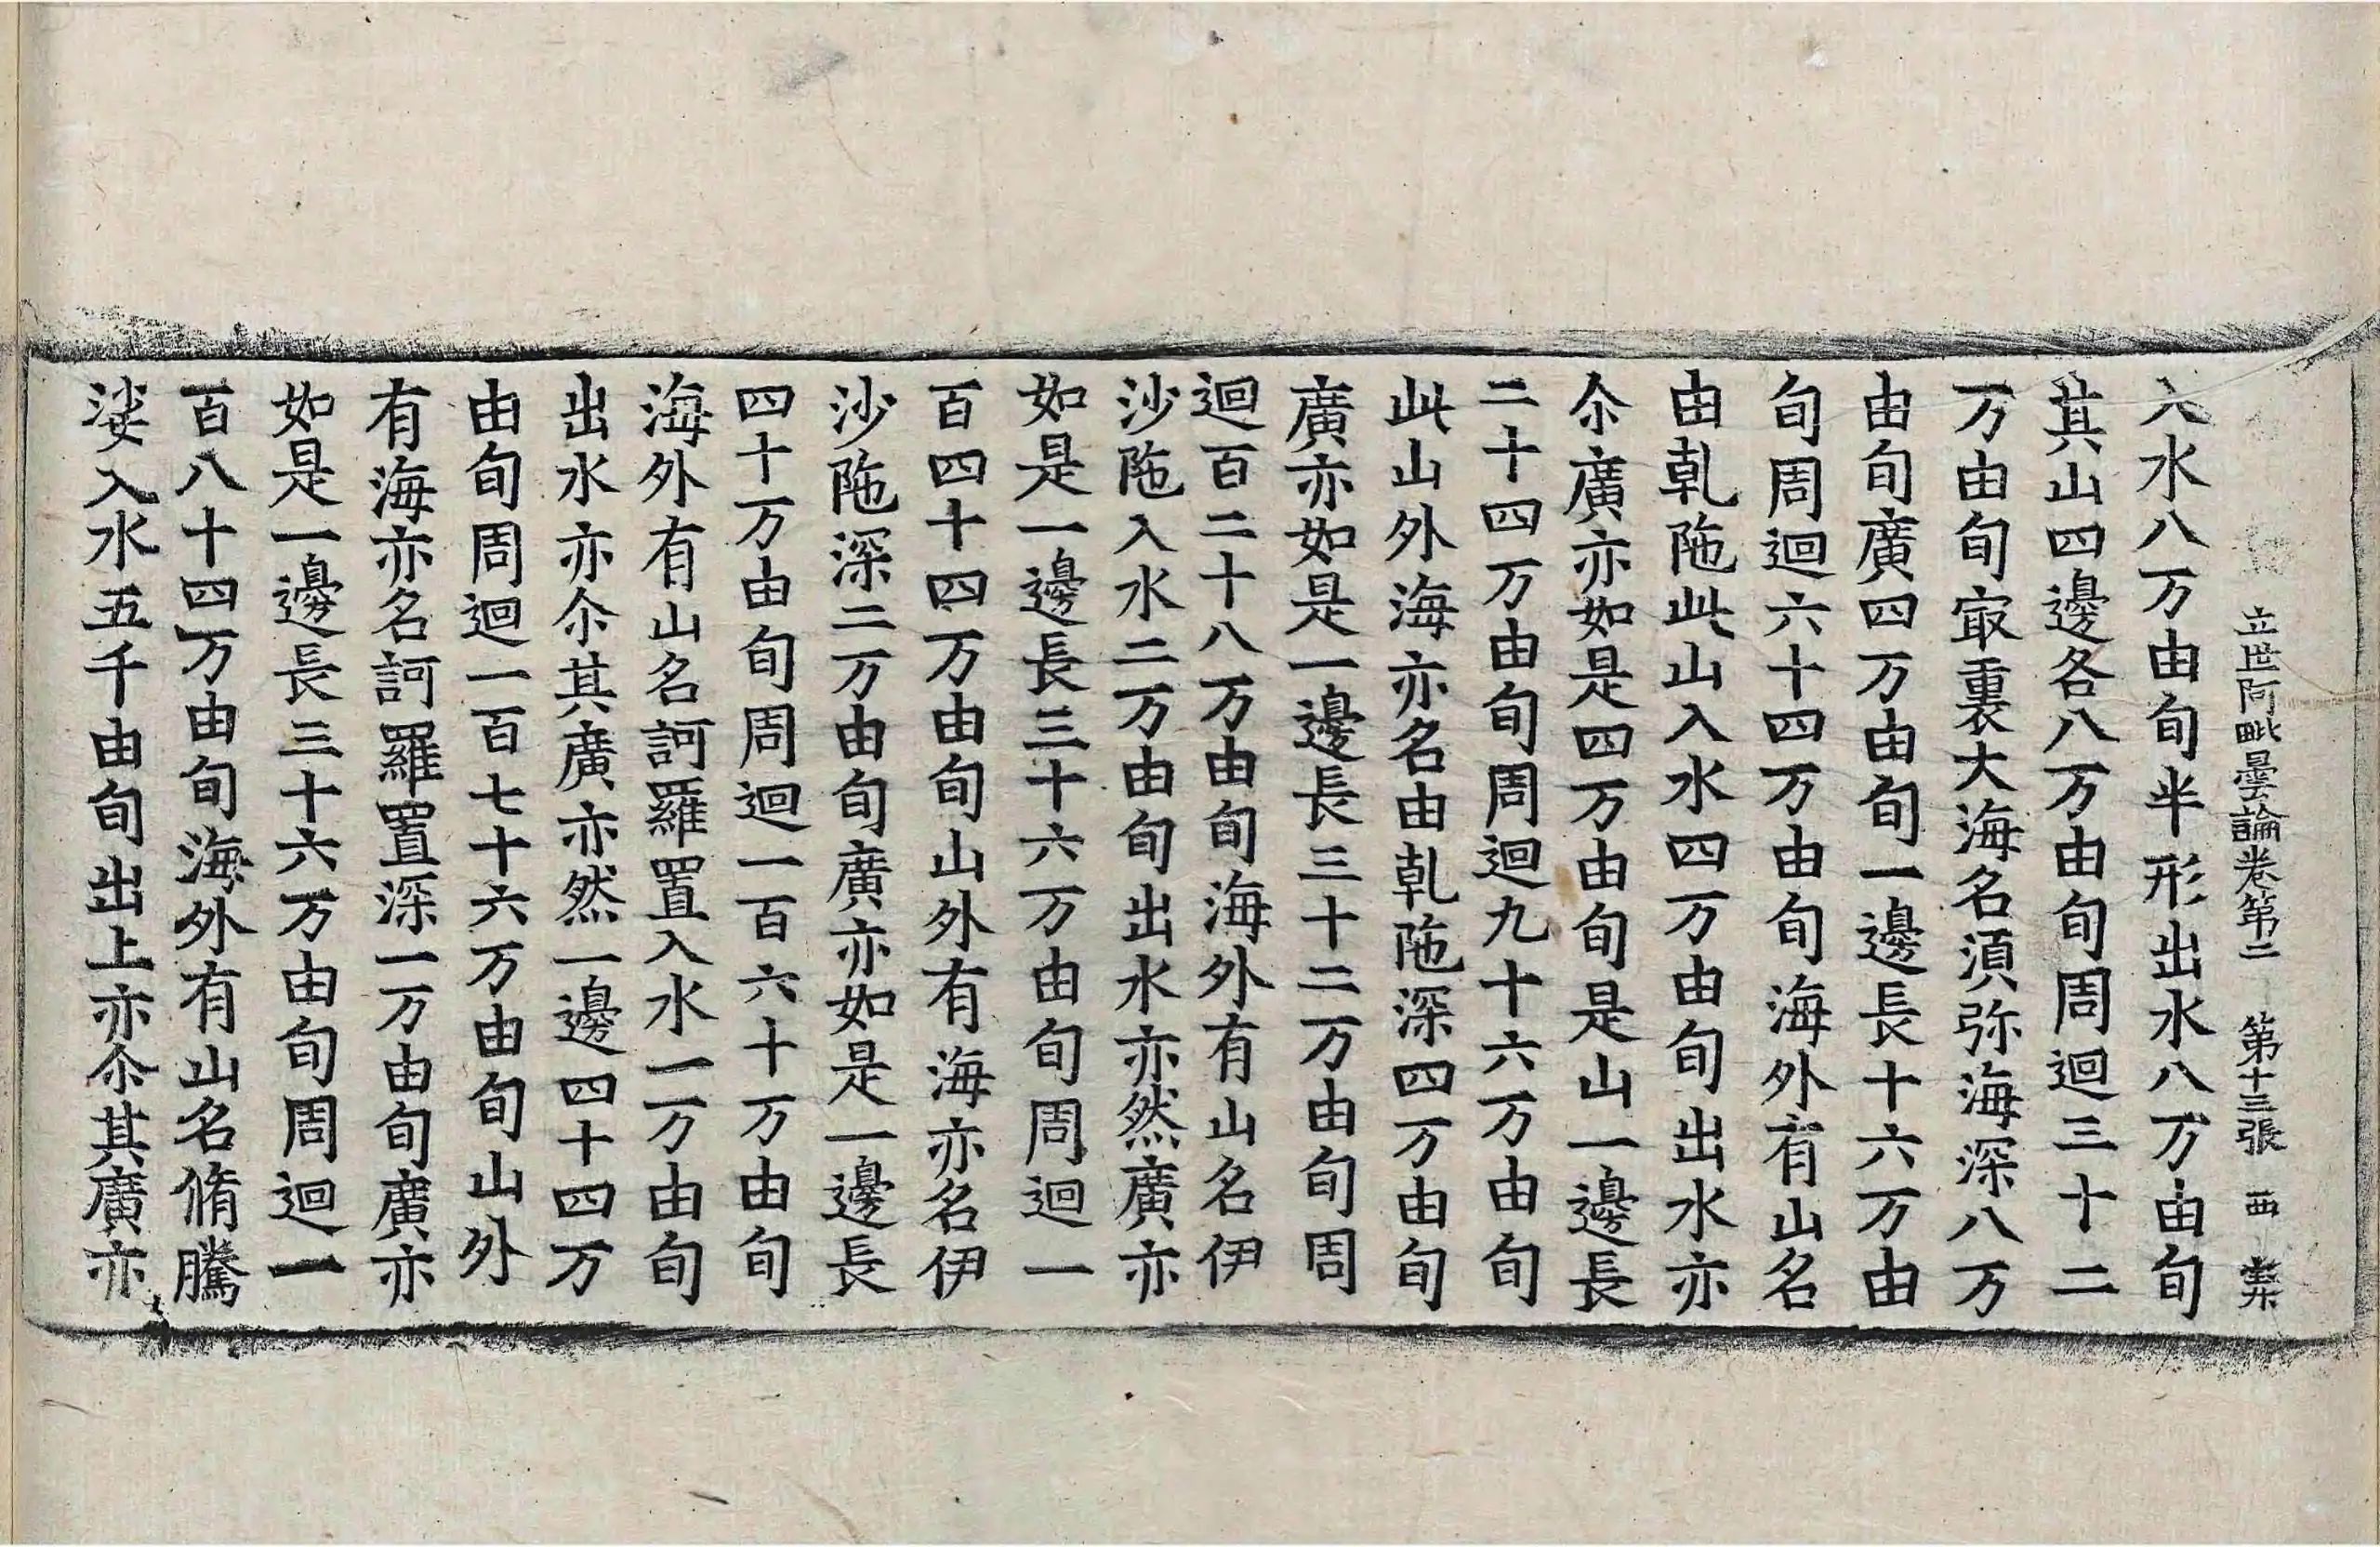 立世阿毗曇論卷第二 第十三張 西
入水八万由旬半形出水八万由旬
其山四邊各八万由旬周迴三十二
万由旬㝡重裏大海名湏弥海深八万
由旬廣四万由旬一邊長十六万由
旬周迴六十四万由旬海外有山名
由乹陁此山入水四万由旬出水亦
尒廣亦如是四万由旬是山一邊長
二十四万由旬周迴九十六万由旬
此山外海亦名由乹陁深四万由旬
廣亦如是一邊長三十二万由旬周
迴百二十八万由旬海外有山名伊
沙陁入水二万由旬出水亦然廣亦
如是一邊長三十六万由旬周迴一
百四十四万由旬山外有海亦名伊
沙陁深二万由旬廣亦如是一邊長
四十万由旬周迴一百六十万由旬
海外有山名訶羅置入水一万由旬
出水亦尒其廣亦然一邊四十四万
由旬周迴一百七十六万由旬山外
有海亦名訶羅置深一万由旬廣亦
如是一邊長三十六万由旬周迴一
百八十四万由旬海外有山名脩騰
娑入水五千由旬出上亦尒其廣亦